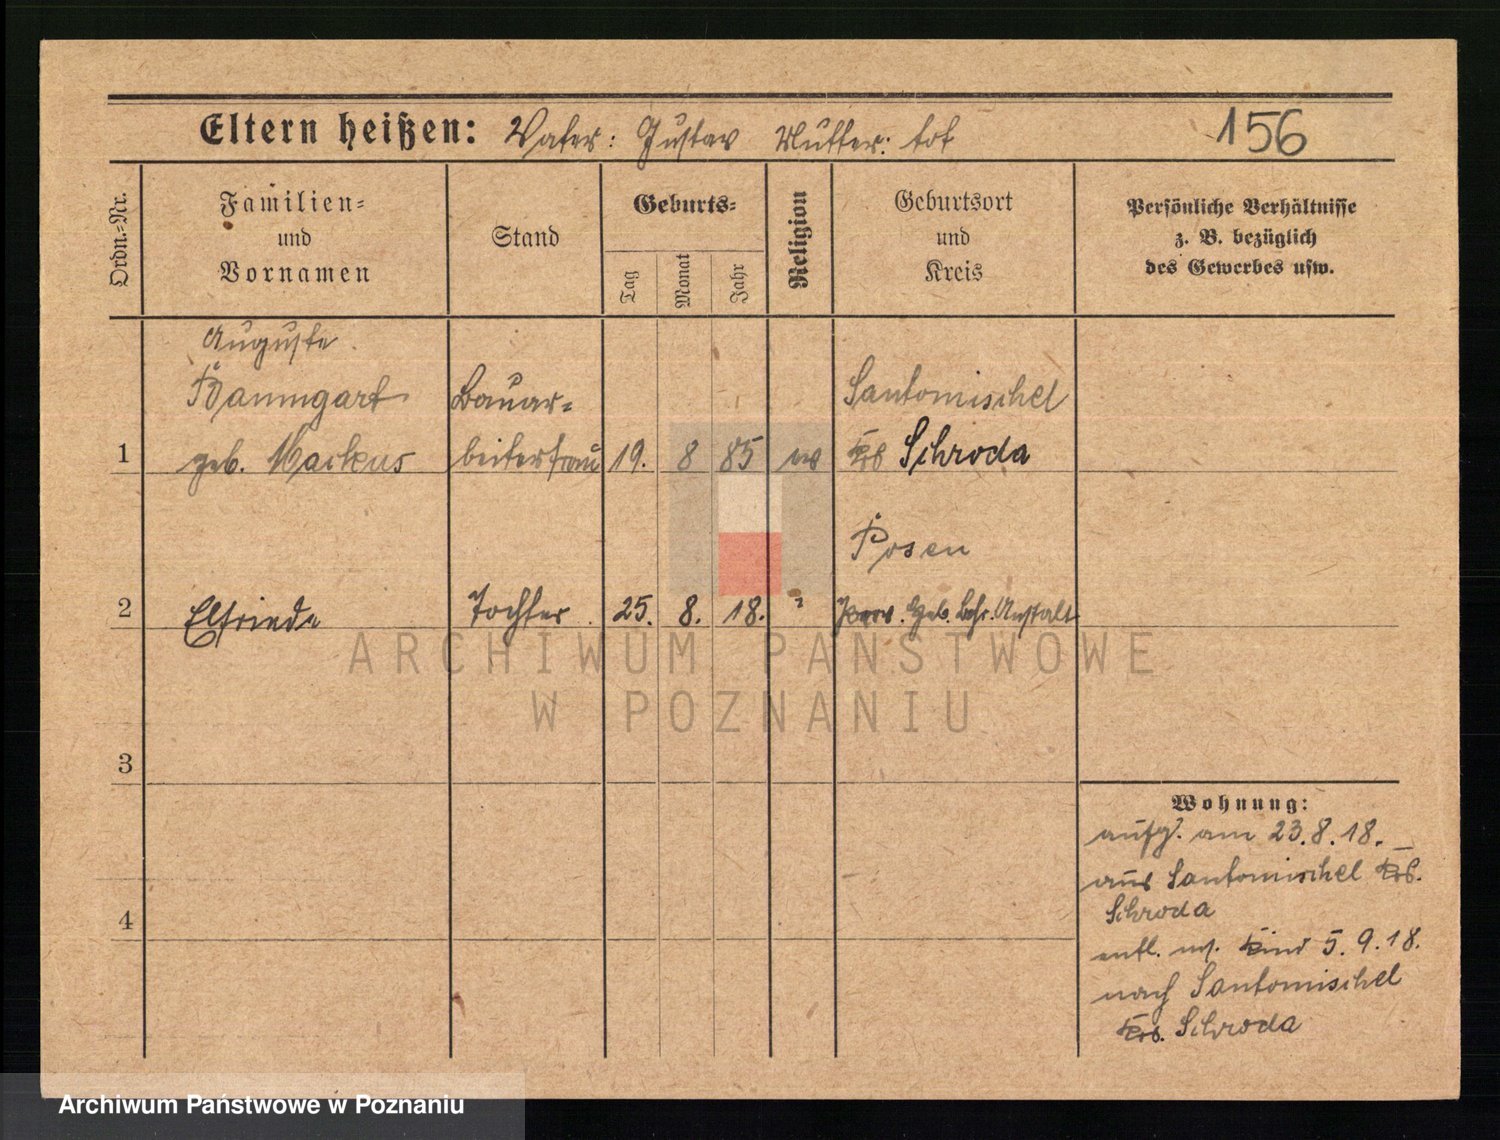 Eltern heißen: Vater: Gustav Mutter: tot
156
Ordn.=Nr.
Familien=
und
Vornamen
Stand
Geburts=
Tag
Monat
Jahr
Religion
Geburtsort
und
Kreis
Persönliche Verhältnisse
z. B. bezüglich
des Gewerbes usw.
Auguste
Baumgart Bauar= Santomischel
1 geb. Markus beiterfrau 19. 8 85 ev Krs Schroda
Posen
2 Elfriede Tochter 25. 8. 18. " Prov. Heb. Lehr. Anstalt
ARCHIWUM PAŃSTWOWE
W POZNANIU
3
Wohnung:
aufg. am 23.8.18.
aus Santomischel Krs.
Schroda
4
entl. m. Kind 5.9.18.
nach Santomischel
Krs. Schroda
Archiwum Państwowe w Poznaniu